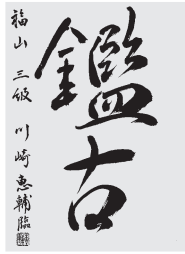 鑑古
福山 三級 川崎恵輔臨